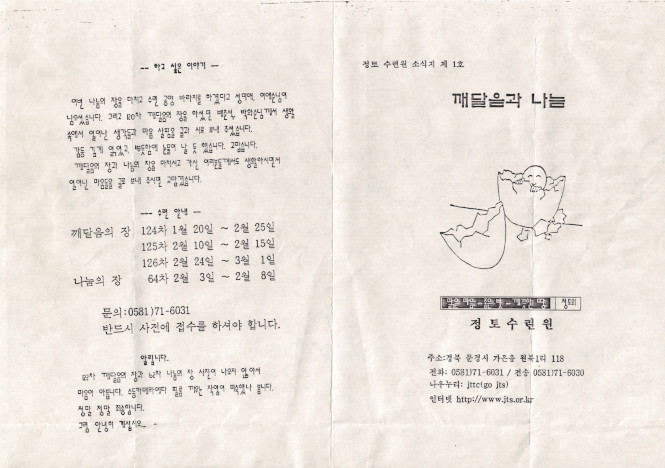 -- 하고 싶은 이야기 --
이번 나눔의 장을 마치고 수련 공명 바라지를 하겠다고
남으셨습니다. 그리고 120차 깨달음의 장을 하셨던 박화순님께서 생활
속에서 일어난 생각들과 마음 살핌을 글과 시로 보내 주셨습니다.
감동 깊게 읽었고, 뭉클함에 눈물이 날 듯 했습니다. 고맙습니다.
깨달음의 장과 나눔의 장을 마치시고 가신 여러분들께서도 생활하시면서
일어난 마음들을 글로 보내 주시면 고맙겠습니다.
--- 수련 안내 --
깨달음의 장 124차 1월 20일 ~ 2월 25일
125차 2월 10일 ~ 2월 15일
126차 2월 24일 ~ 3월 1일
나눔의 장 64차 2월 3일 ~ 2월 8일
문의:0581)71-6031
반드시 사전에 접수를 하셔야 합니다.
알립니다.
깨달음의 장과 62차 나눔의 장 사진이 나오지 않아서
마음이 아픕니다. 수동카메라이다 필름 감는 작업이 미숙했나 봅니다.
정말 정말 죄송합니다.
그럼 안녕히 계십시오...
정토 수련원 소식지 제 1호
깨달음과 나눔
맑은 마음-좋은 벗-깨끗한 땅 정토회
정토수련원
주소:경북 문경시 가은읍 원북1리 118
전화: 0581)71-6031 / 전송 0581)71-6030
나우누리: jttc(go jts)
인터넷 http://www.jts.or.kr